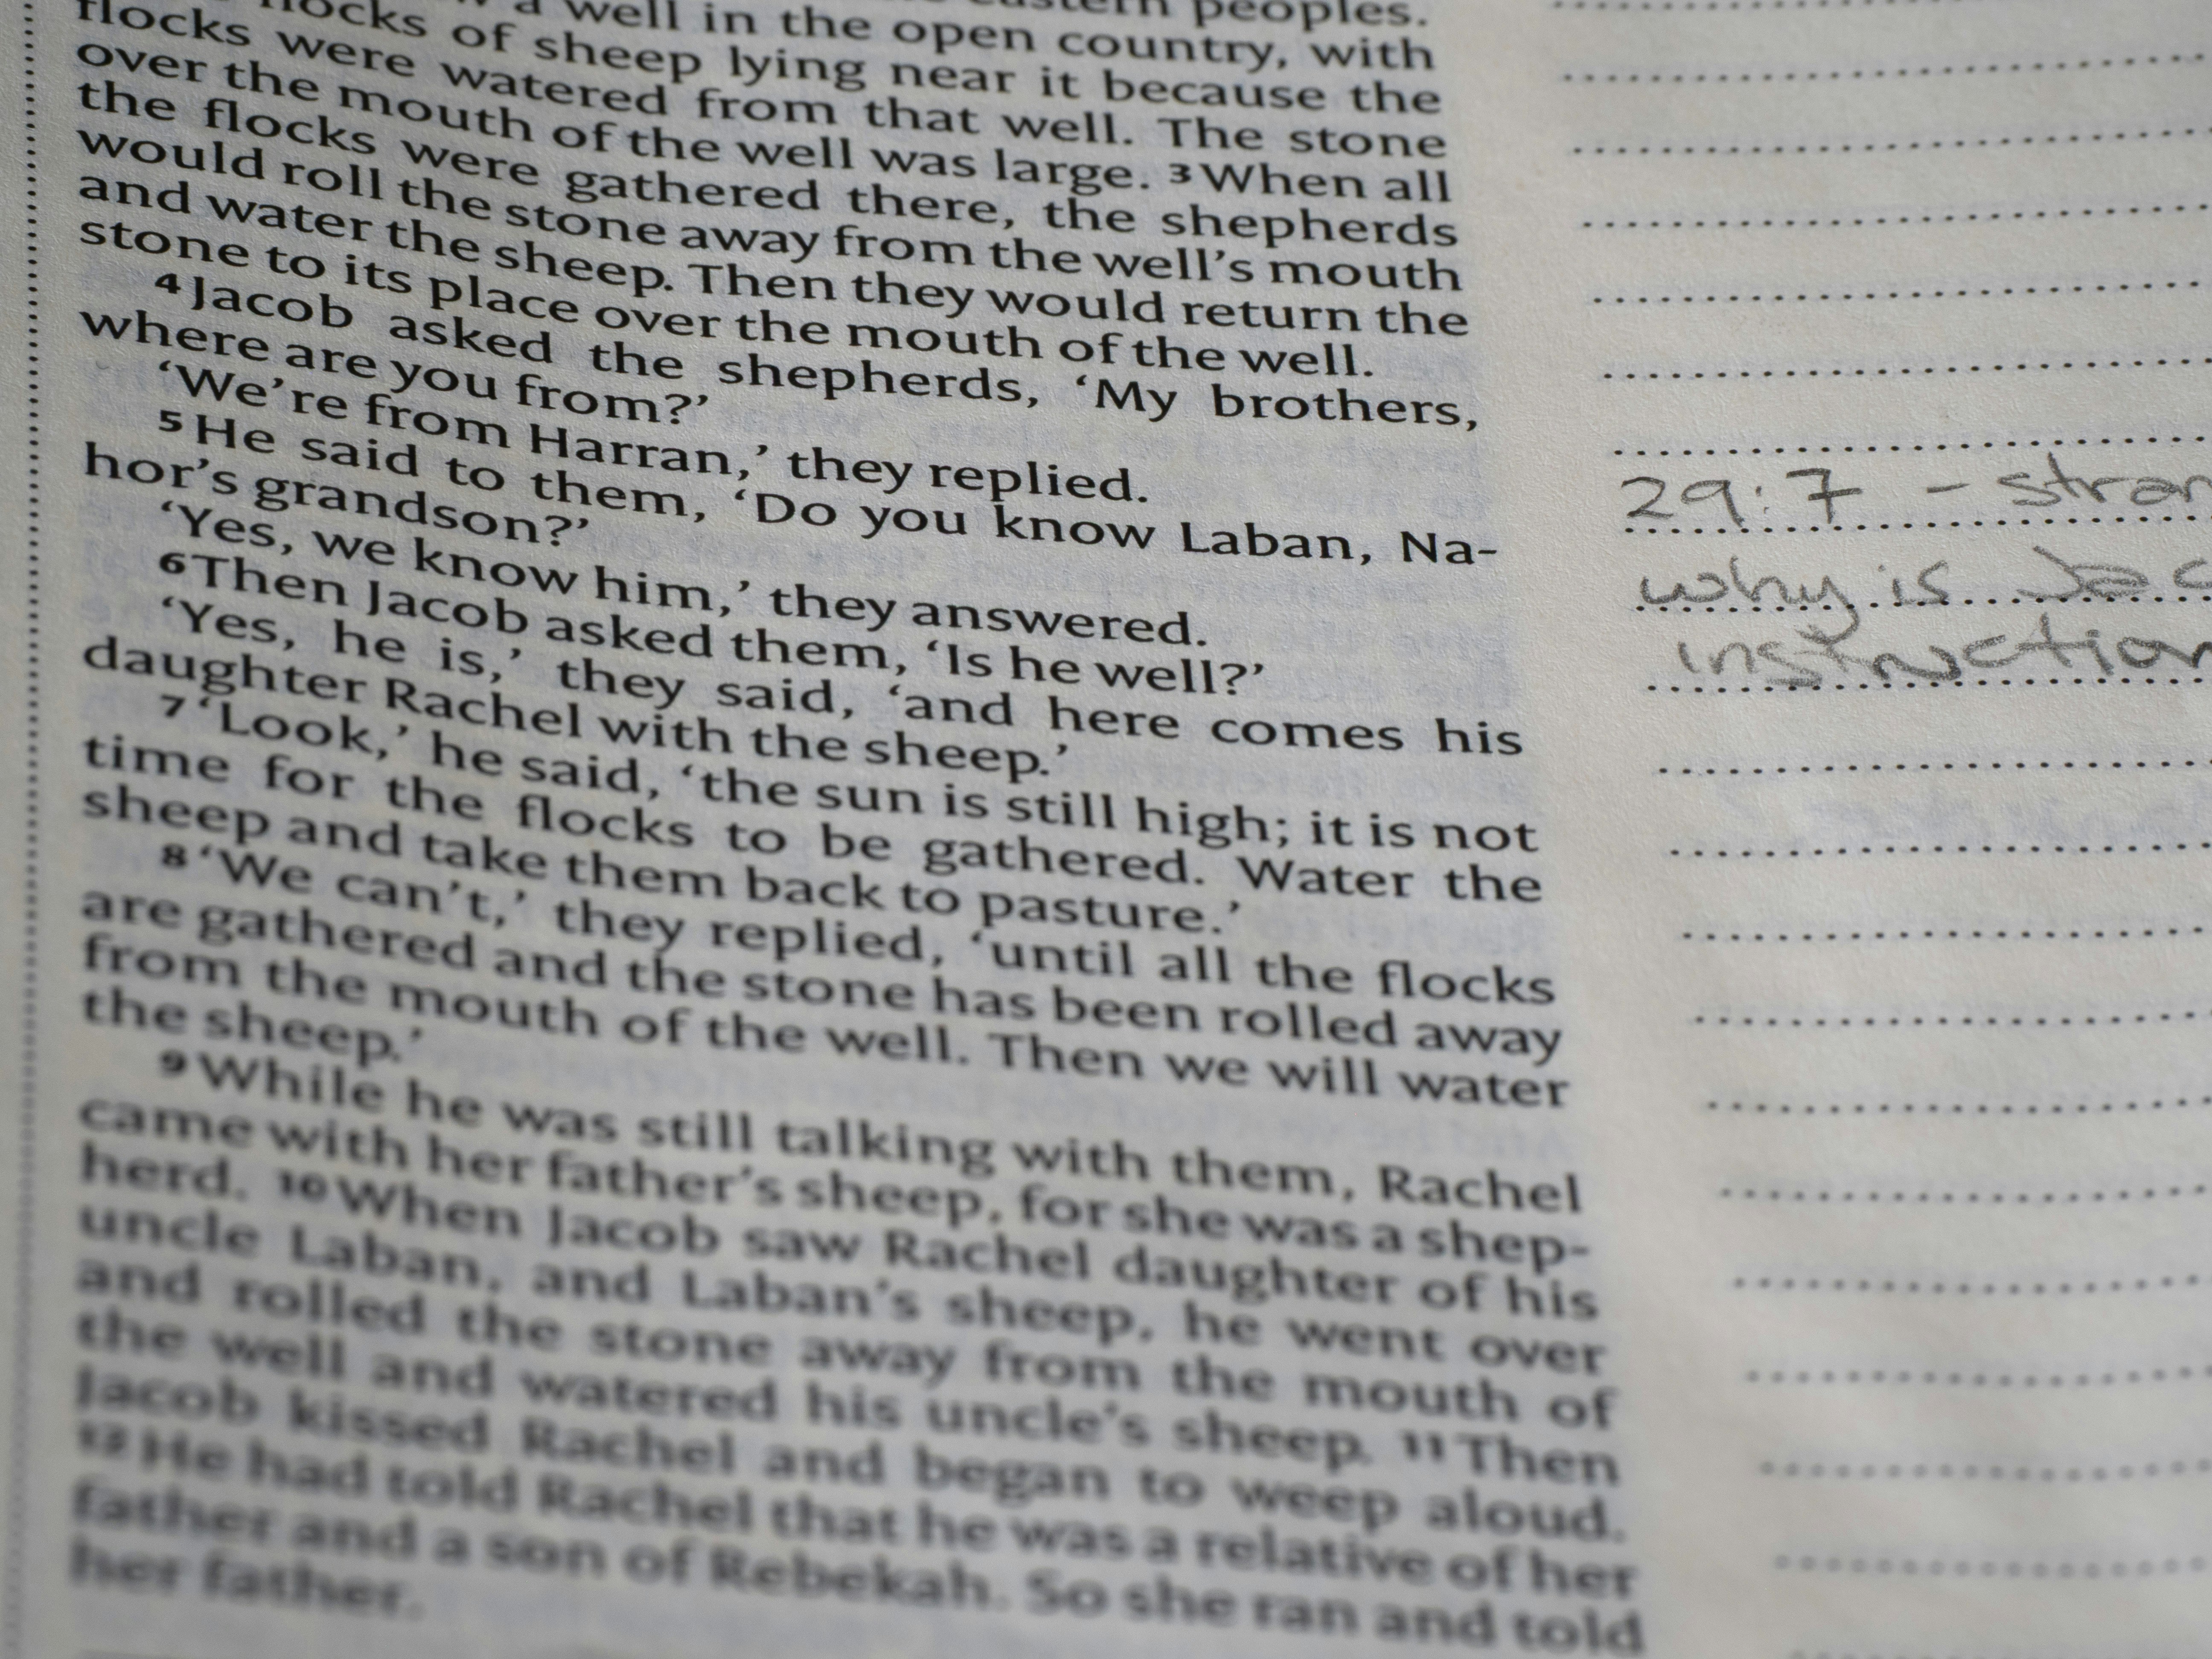 peoples.
flocks of sheep lying near it because the
a well in the open country, with
flocks were watered from that well. The stone
over the mouth of the well was large. 3 When all
the flocks were gathered there, the shepherds
would roll the stone away from the well's mouth
and water the sheep. Then they would return the
stone to its place over the mouth of the well.
4 Jacob asked the shepherds, ‘My brothers,
where are you from?’
‘We’re from Harran,’ they replied.
5 He said to them, ‘Do you know Laban, Na-
hor’s grandson?’
‘Yes, we know him,’ they answered.
6 Then Jacob asked them, ‘Is he well?’
‘Yes, he is,’ they said, ‘and here comes his
daughter Rachel with the sheep.’
7 ‘Look,’ he said, ‘the sun is still high; it is not
time for the flocks to be gathered. Water the
sheep and take them back to pasture.’
8 ‘We can’t,’ they replied, ‘until all the flocks
are gathered and the stone has been rolled away
from the mouth of the well. Then we will water
the sheep.’
9 While he was still talking with them, Rachel
came with her father’s sheep, for she was a shep-
herd. 10 When Jacob saw Rachel daughter of his
uncle Laban, and Laban’s sheep, he went over
and rolled the stone away from the mouth of
the well and watered his uncle’s sheep. 11 Then
Jacob kissed Rachel and began to weep aloud.
12 He had told Rachel that he was a relative of her
father and a son of Rebekah. So she ran and told
her father.
29:7 - stran
why is Jac
instruction